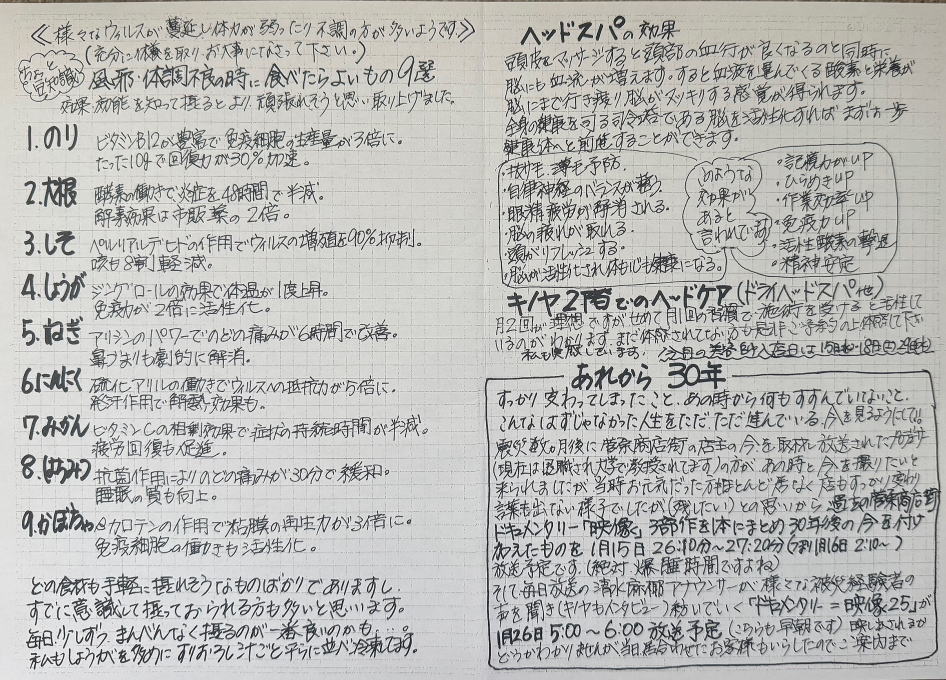 ≪様々なウィルスが蔓延し体力が弱ったり不調の方が多いようです。≫
(充分に休養を取りお大事になさって下さい。)
おっと豆知識
風邪・体調不良の時に食べたらよいもの9選
効果・効能を知って摂るとより頑張れそうと思い取り上げました。
1.のり ビタミンB12が豊富で免疫細胞の生産量が3倍に。
たった10gで回復力が30%加速。
2.大根 酵素の働きで炎症を48時間で半減。
解毒効果は市販薬の2倍。
3.しそ ペルリアルデヒドの作用でウィルスの増殖を90%抑制。
咳も8割軽減。
4.しょうが ジンゲロールの効果で体温が1度上昇。
免疫力が2倍に活性化。
5.ねぎ アリシンのパワーでのどの痛みが6時間で改善。
鼻づまりも劇的に解消。
6.にんにく 硫化アリルの働きでウィルスへの抵抗力が5倍に。
発汗作用で解熱効果も。
7.みかん ビタミンCの相乗効果で症状の持続時間が半減。
疲労回復も促進。
8.はちみつ 抗菌作用によりのどの痛みが30分で緩和。
睡眠の質も向上。
9.かぼちゃ βカロテンの作用で粘膜の再生力が3倍に。
免疫細胞の働きも活性化。
どの食材も手軽に摂れそうなものばかりでありますし
すでに意識して摂っておられる方も多いと思います。
毎日少しずつ、まんべんなく摂るのが一番良いのかも・・・。
私もしょうがを多めにすりおろし汁ごと平らに並べ冷凍してます。
ヘッドスパの効果
頭皮をマッサージすると頭部の血行が良くなるのと同時に、
脳にも血流が増えます。すると血液を運んでくる酸素と栄養が
脳にまで行き渡り脳がスッキリする感覚が得られます。
全身の健康を司る司令塔である脳を活性化すればまずは一歩
健康体へと前進することができます。
・抜け毛 薄毛予防
・自律神経のバランスが整う。
・眼精疲労が解消される。
・脳の疲れが取れる。
・頭がリフレッシュする。
・脳が活性化され体も心も健康になる。
このような
効果が
あると
言われてます
・記憶力がUP
・ひらめきUP
・作業効率UP
・免疫力UP
・活性酸素の撃退
・精神安定
キノヤ2階でのヘッドケア(ドライヘッドスパ他)
月2回が理想ですがせめて月1回の習慣で施術を受けると活性して
いるのがわかります。まだ体験されてない方も是非ご予約の上体感して下さい
私も実感しています。 (今月の美容師入店日は15日(水)・18日(土)
あれから 30年
すっかり変わってしまったこと、あの時から何もすすんでいないこと、
こんなはずじゃなかった人生をただ、ただ進んでいる、今を見るようにして!!
震災数ヶ月後に菅原商店街の店主の今を取材し放送された
(現在は退職され大学で教授されてます)の方が、あの時と今を撮りたいと
来られましたが、当時お元気だった方殆んど居なく店もすっかり変わり
言葉も出ない様子でしたが(残したい)との思いから、過去の菅原商店街
ドキュメンタリー「映像」3部作を1本にまとめ30年後の今を付け
加えたものを1月15日 26:10分~27:20分(つまり1月16日 2:10~)
放送予定です。(絶対 爆睡時間ですよね)
そして毎日放送の清水麻椰アナウンサーが様々な被災経験者の
声を聞き(キノヤもインタビュー)紡いでいく「ドキュメンタリー=映像25」が
1月26日 5:00~6:00 放送予定(こちらも早朝です)映し出されるか
どうかわかりませんが、当日居合わせたお客様もいらしたのでご案内まで